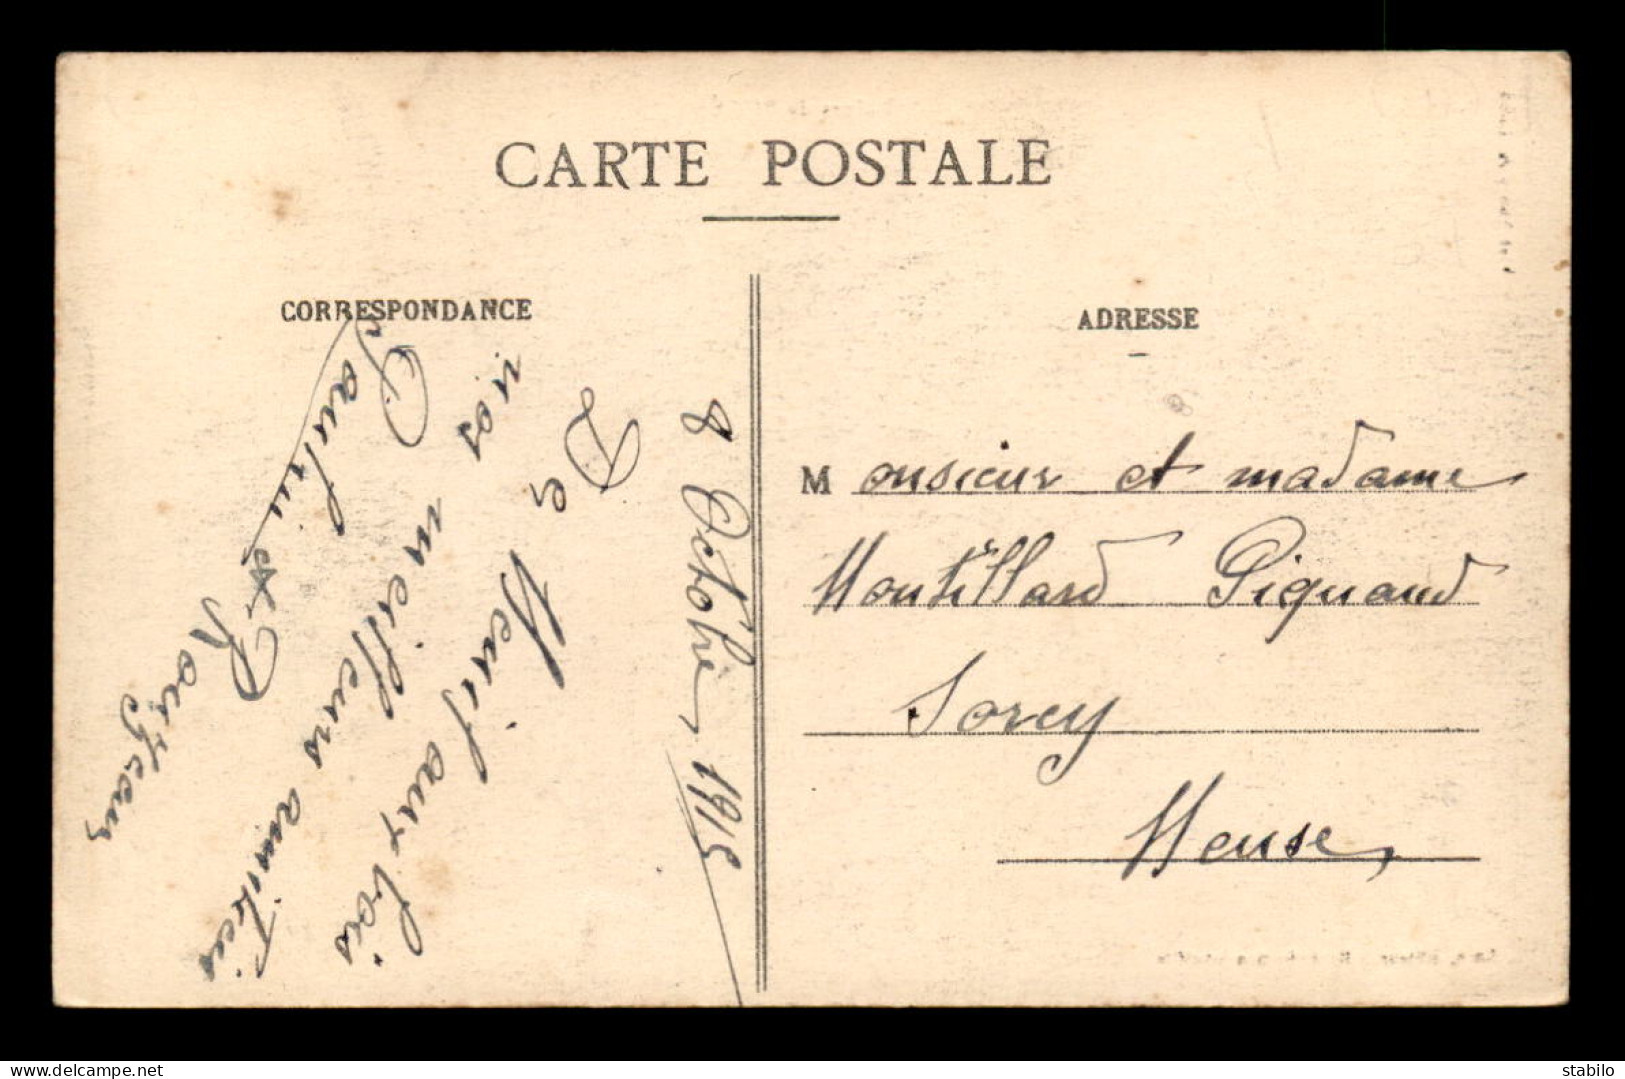 CARTE POSTALE
CORRESPONDANCE
8 Octobre 1915
De Menil aux bois
nos meilleurs amitiés
Paulin et Rouyeaux
ADRESSE
Monsieur et madame
Montillard Pignand
Sorcy
Meuse,
delcampe.net
stabilo